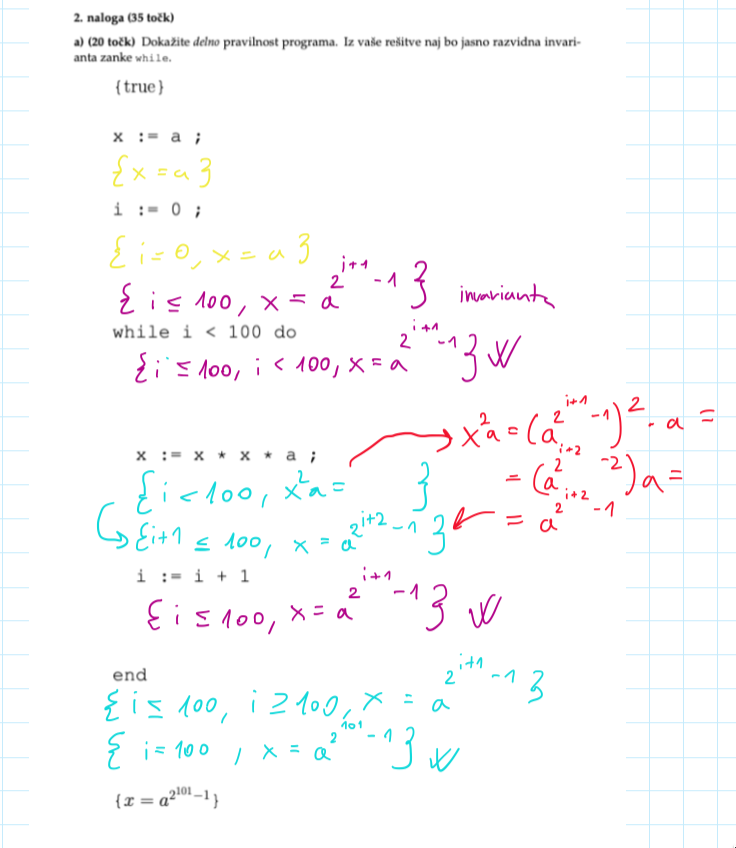 2. naloga (35 točk)
a) (20 točk) Dokažite delno pravilnost programa. Iz vaše rešitve naj bo jasno razvidna invari-
anta zanke while.
{true}
x := a ;
{x = a}
i := 0 ;
{i = 0, x = a}
{i ≤ 100, x = a^{2^{i+1}-1}} invarianta
while i < 100 do
{i ≤ 100, i < 100, x = a^{2^{i+1}-1}} W
x²a = (a^{2^{i+1}-1})² · a =
x := x * x * a ;
= (a^{2^{i+2}-2})a =
{i < 100, x²a = }
= a^{2^{i+2}-1}
{i+1 ≤ 100, x = a^{2^{i+2}-1}}
i := i + 1
{i ≤ 100, x = a^{2^{i+1}-1}} W
end
{i ≤ 100, i ≥ 100, x = a^{2^{i+1}-1}}
{i = 100, x = a^{2^{101}-1}} W
{x = a^{2^{101}-1}}